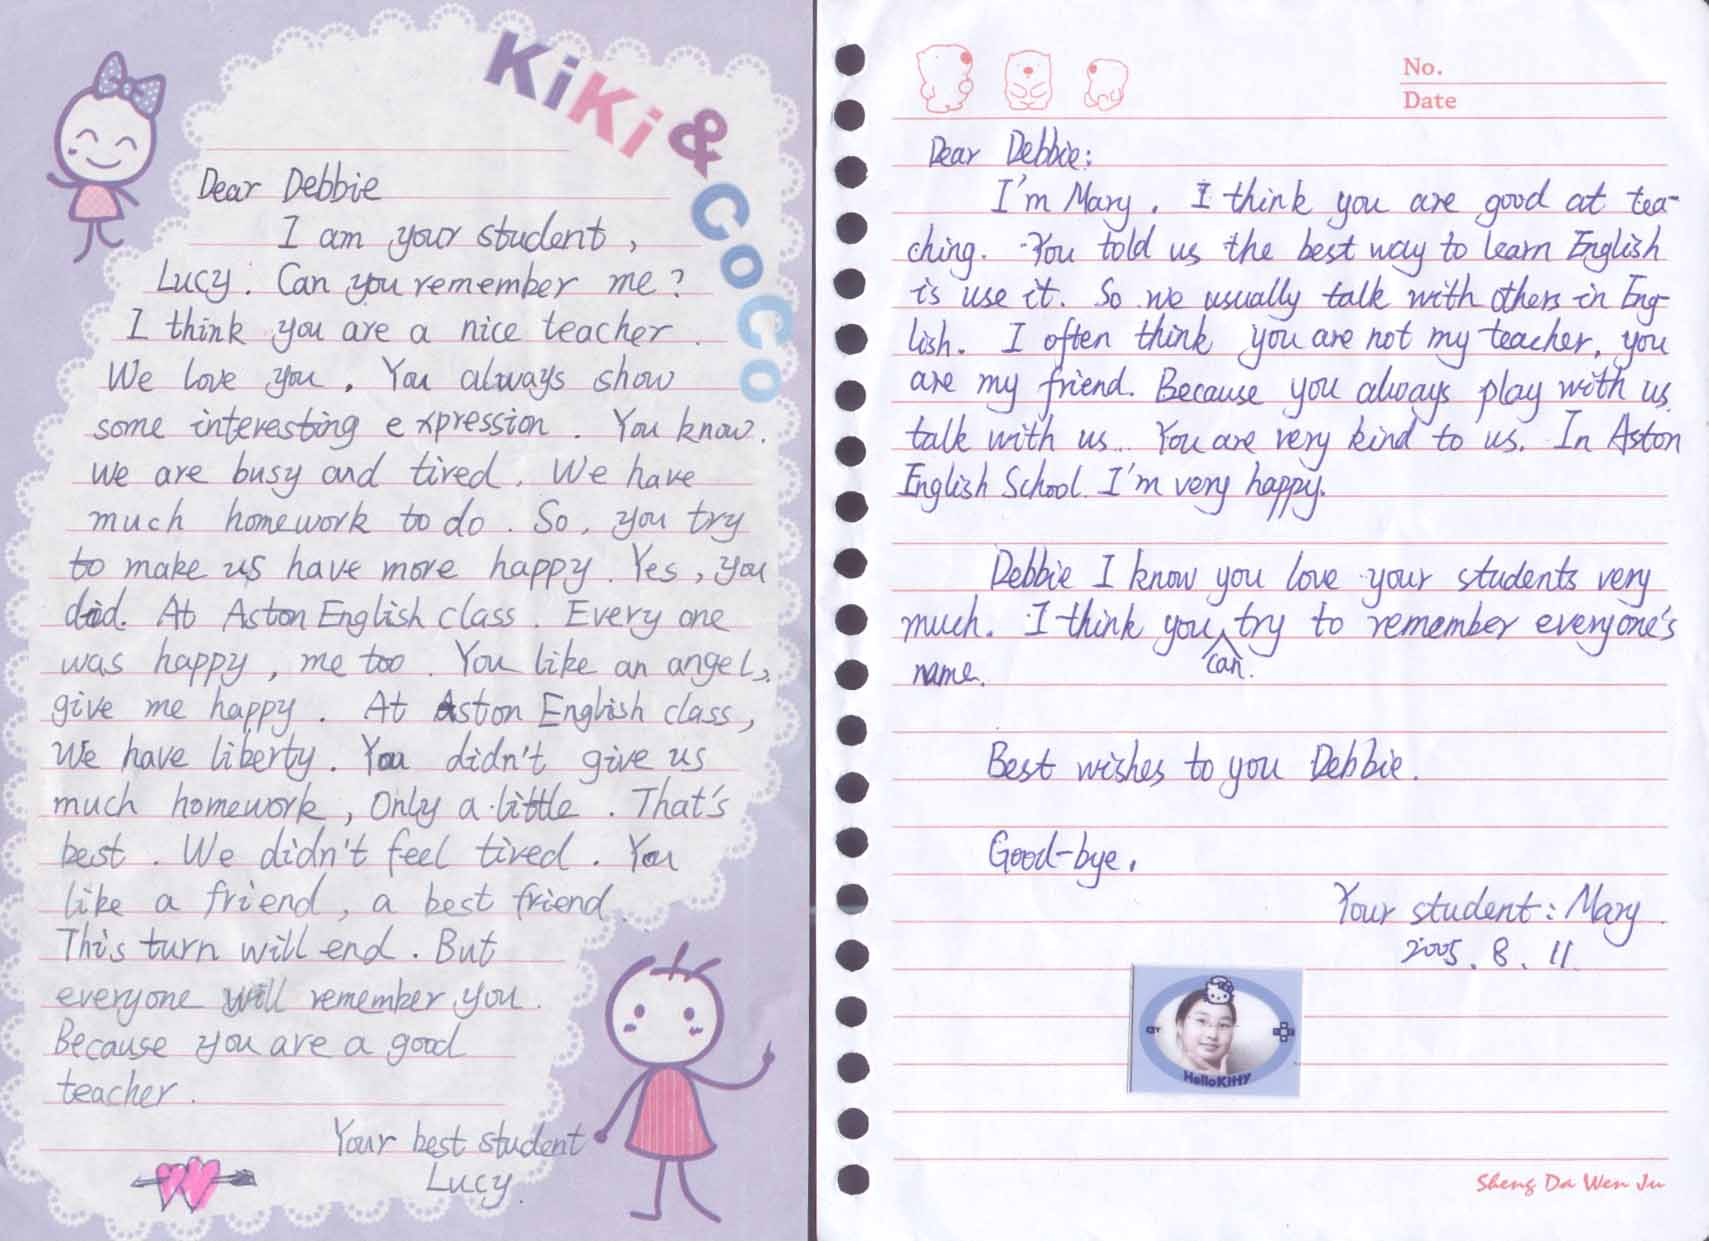 KiKi & CoCo
Dear Debbie
I am your student,
Lucy. Can you remember me?
I think you are a nice teacher.
We love you. You always show
some interesting expression. You know.
we are busy and tired. We have
much homework to do. So, you try
to make us have more happy. Yes, you
did. At Aston English class. Every one
was happy, me too. You like an angel,
give me happy. At Aston English class,
We have liberty. You didn't give us
much homework, Only a little. That's
best. We didn't feel tired. You
like a friend, a best friend.
This turn will end. But
everyone will remember you.
Because you are a good
teacher.
Your best student
Lucy.
No.
Date
Dear Debbie:
I'm Mary. I think you are good at tea-
ching. You told us the best way to learn English
is use it. So we usually talk with others in Eng-
lish. I often think you are not my teacher, you
are my friend. Because you always play with us
talk with us... You are very kind to us. In Aston
English School. I'm very happy.
Debbie I know you love your students very
much. I think you can try to remember everyone's
name.
Best wishes to you Debbie.
Good-bye.
Your student: Mary
2005. 8. 11.
Hello Kitty
Sheng Da Wen Ju